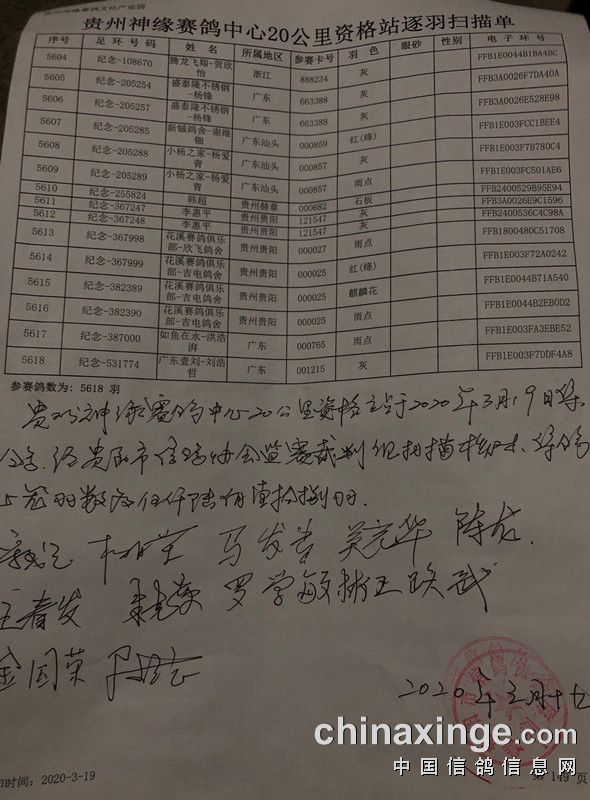 贵州神缘赛鸽文化产业园
贵州神缘赛鸽中心20公里资格站逐羽扫描单
序号 足环号码 姓名 所属地区 参赛卡号 羽色 眼砂 性别 电子环号
5604 纪念-108670 腾龙飞翔-贺欣怡 浙江 888234 灰 FFB1E0044B1BA4BC
5605 纪念-205254 盛泰隆不锈钢-杨锋 广东 663388 灰 FFB3A0026F7DA40A
5606 纪念-205257 盛泰隆不锈钢-杨锋 广东 663388 灰 FFB3A0026E528E98
5607 纪念-205285 新铖鸽舍-谢维钿 广东汕头 000859 红(绛) FFB1E003FCC1BEE4
5608 纪念-205288 小杨之家-杨爱青 广东汕头 000857 灰 FFB1E003F7B780C4
5609 纪念-205289 小杨之家-杨爱青 广东汕头 000857 雨点 FFB1E003FC501AE6
5610 纪念-255824 韩超 贵州赫章 000682 石板 FFB2400529B95E94
5611 纪念-367247 李惠平 贵州贵阳 121547 灰 FFB3A0026E9C1596
5612 纪念-367248 李惠平 贵州贵阳 121547 灰 FFB2400536C4C98A
5613 纪念-367998 花溪赛鸽俱乐部-欣飞鸽舍 贵州贵阳 000027 雨点 FFB1800480C51708
5614 纪念-367999 花溪赛鸽俱乐部-吉电鸽舍 贵州贵阳 000025 红(绛) FFB1E003F72A0242
5615 纪念-382389 花溪赛鸽俱乐部-吉电鸽舍 贵州贵阳 000025 麒麟花 FFB1E0044B71A540
5616 纪念-382390 花溪赛鸽俱乐部-吉电鸽舍 贵州贵阳 000025 雨点 FFB1E0044B2EB0D2
5617 纪念-387000 如鱼在水-洪浩湃 广东 000765 雨点 FFB1E003FA3EBE52
5618 纪念-531774 广东壹刘-刘浩哲 广东 001215 灰 FFB1E003F7DDF4A8
参赛鸽数为: 5618 羽
贵州神缘赛鸽中心20公里资格站于2020年3月19日
经贵阳市信鸽协会监赛裁判组扫描核对,
上笼羽数为伍仟陆佰壹拾捌羽.
马发贵 吴光华 陈龙.
王春发 罗学敏
金国荣
2020年三月十九
印时间: 2020-3-19
第 149 页
chinaxinge.com
中国信鸽信息网